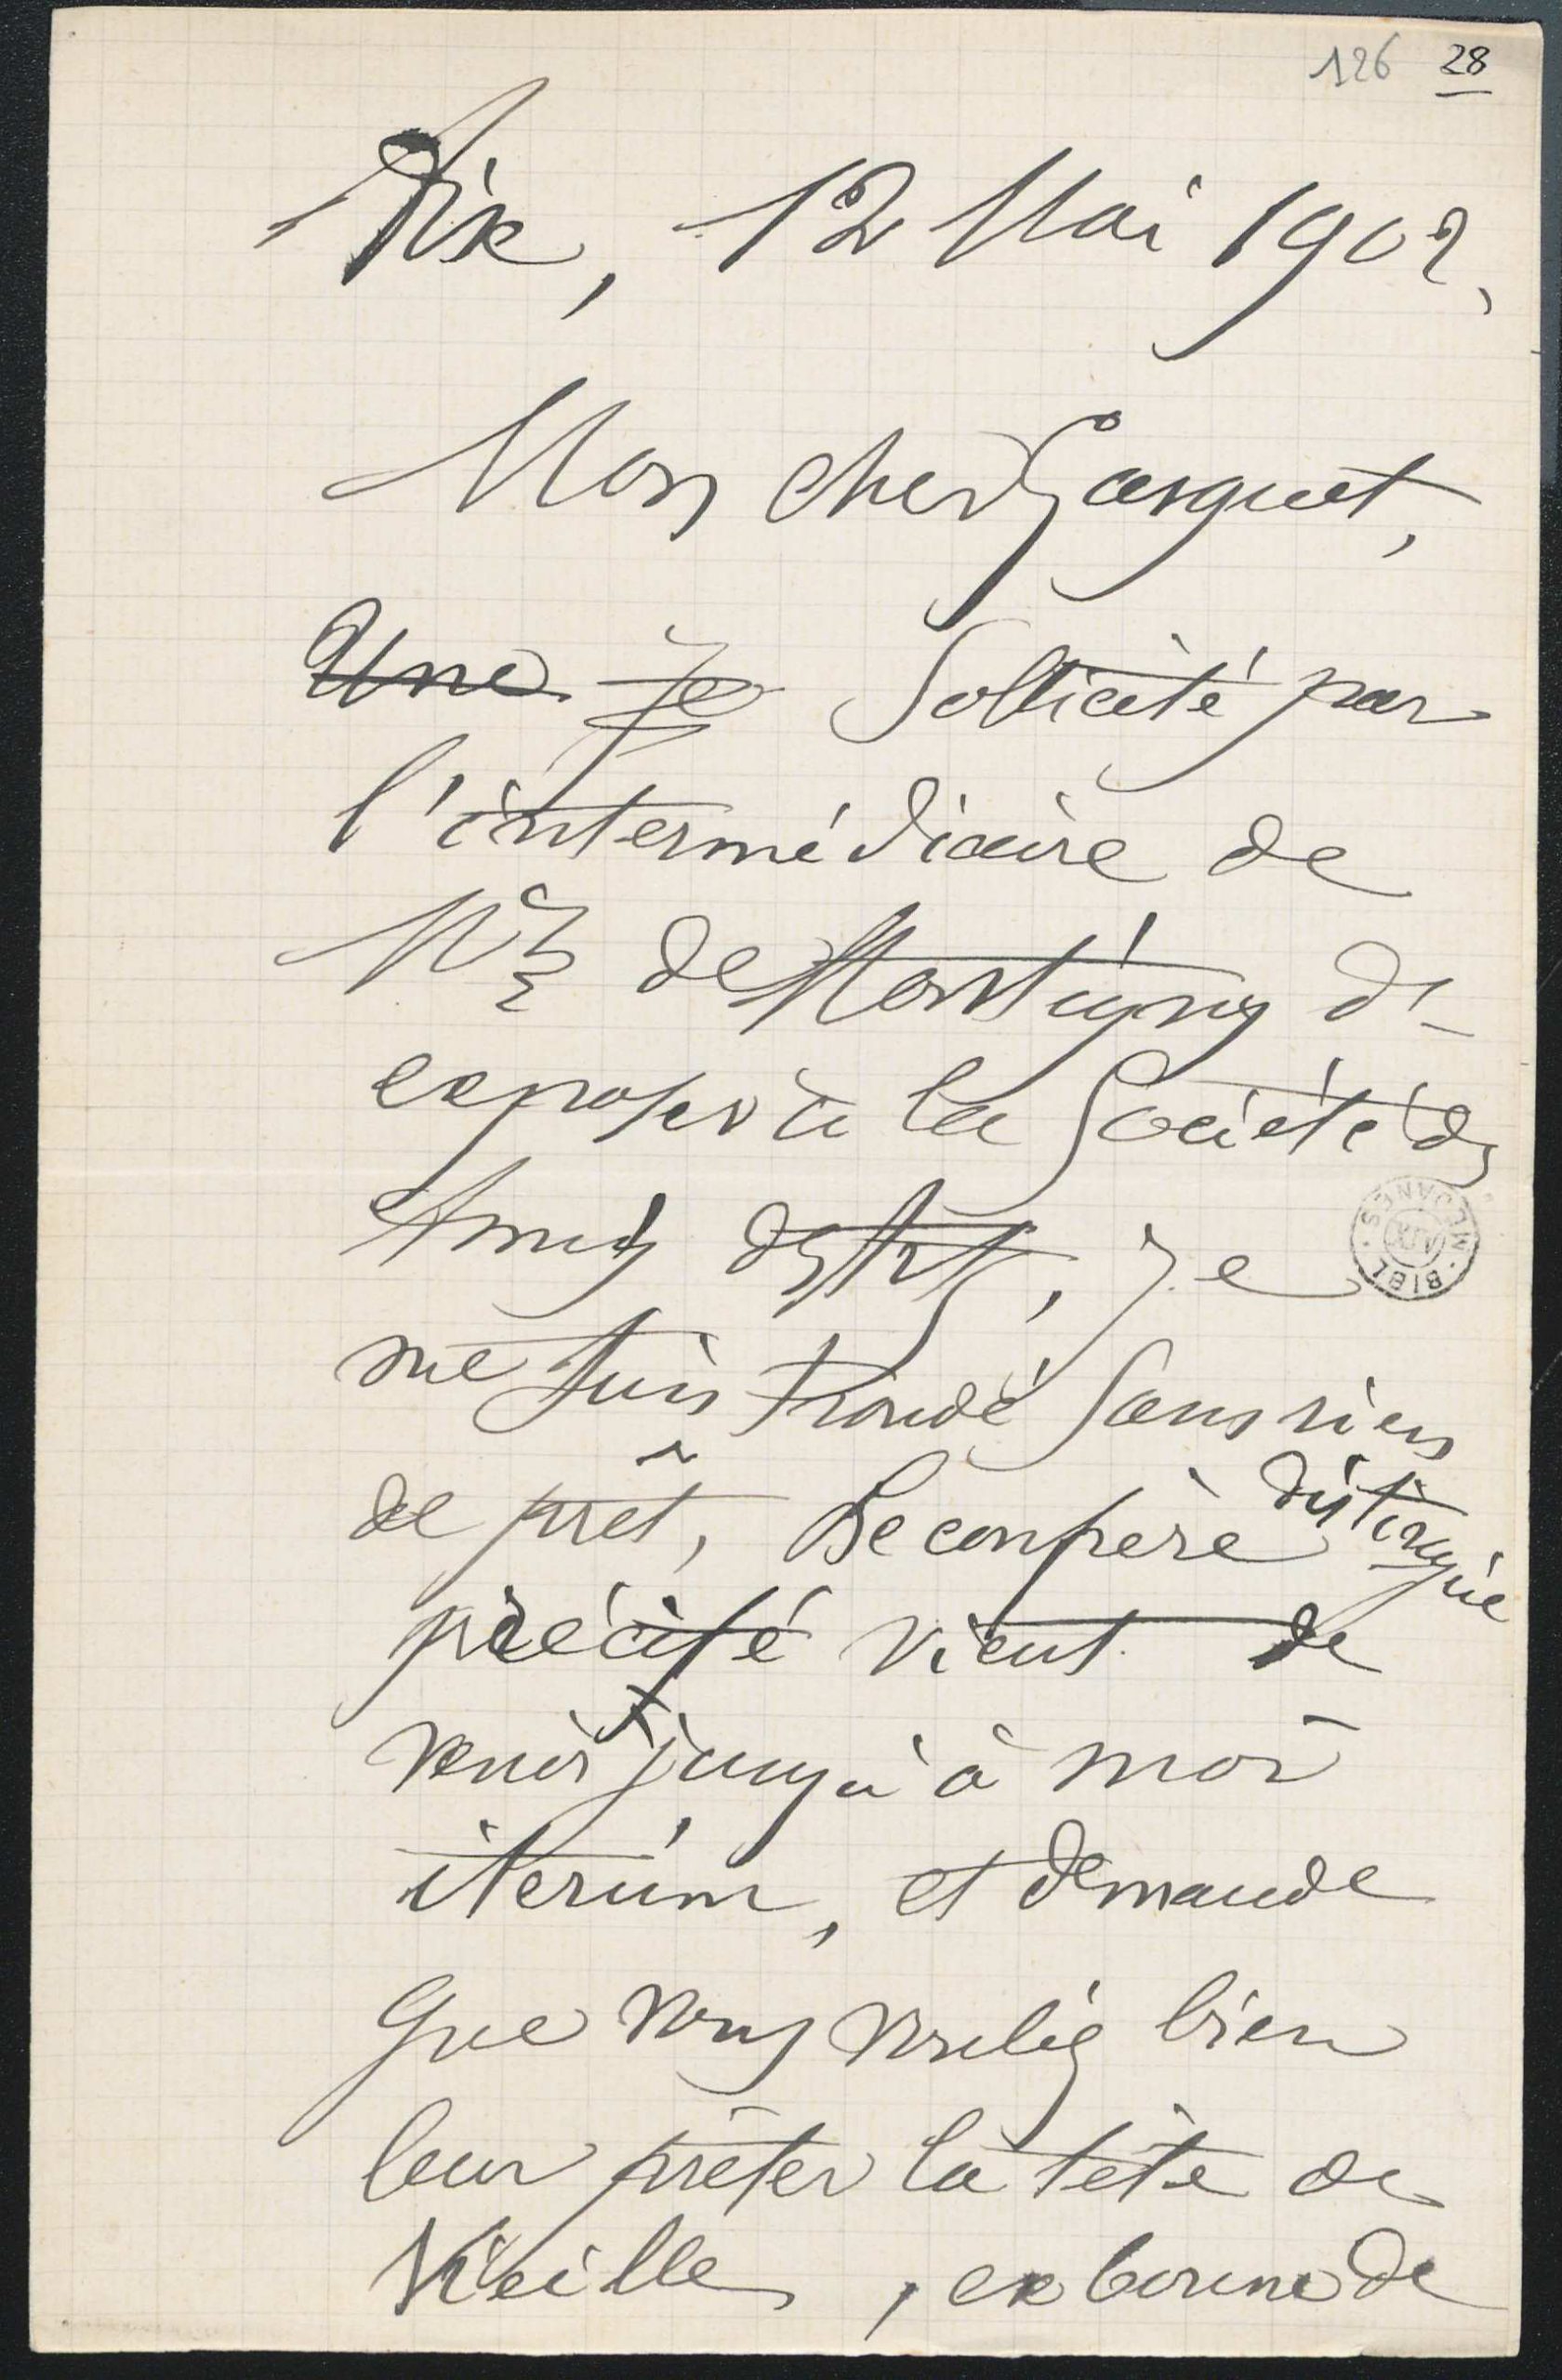 126 28
Aix, 12 Mai 1902,
Mon cher Gasquet,
Une Je Sollicité par
l'intermédiaire de
Mr de Montigny d'
exposer à la Société des
Amis des Arts, je
me suis trouvé sans rien
de prêt, Le confrère distingué
précité vient de
venir jusqu'à moi
iterum, et demande
que vous vouliez bien
leur prêter la tête de
Vieille, ex bonne de
BIBL. MÉJANES.
AIX